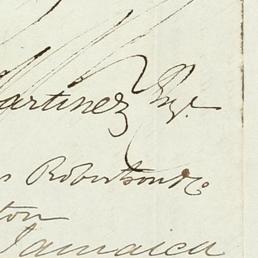 artinez Esqr.
s Robertson & Co
ton
Jamaica